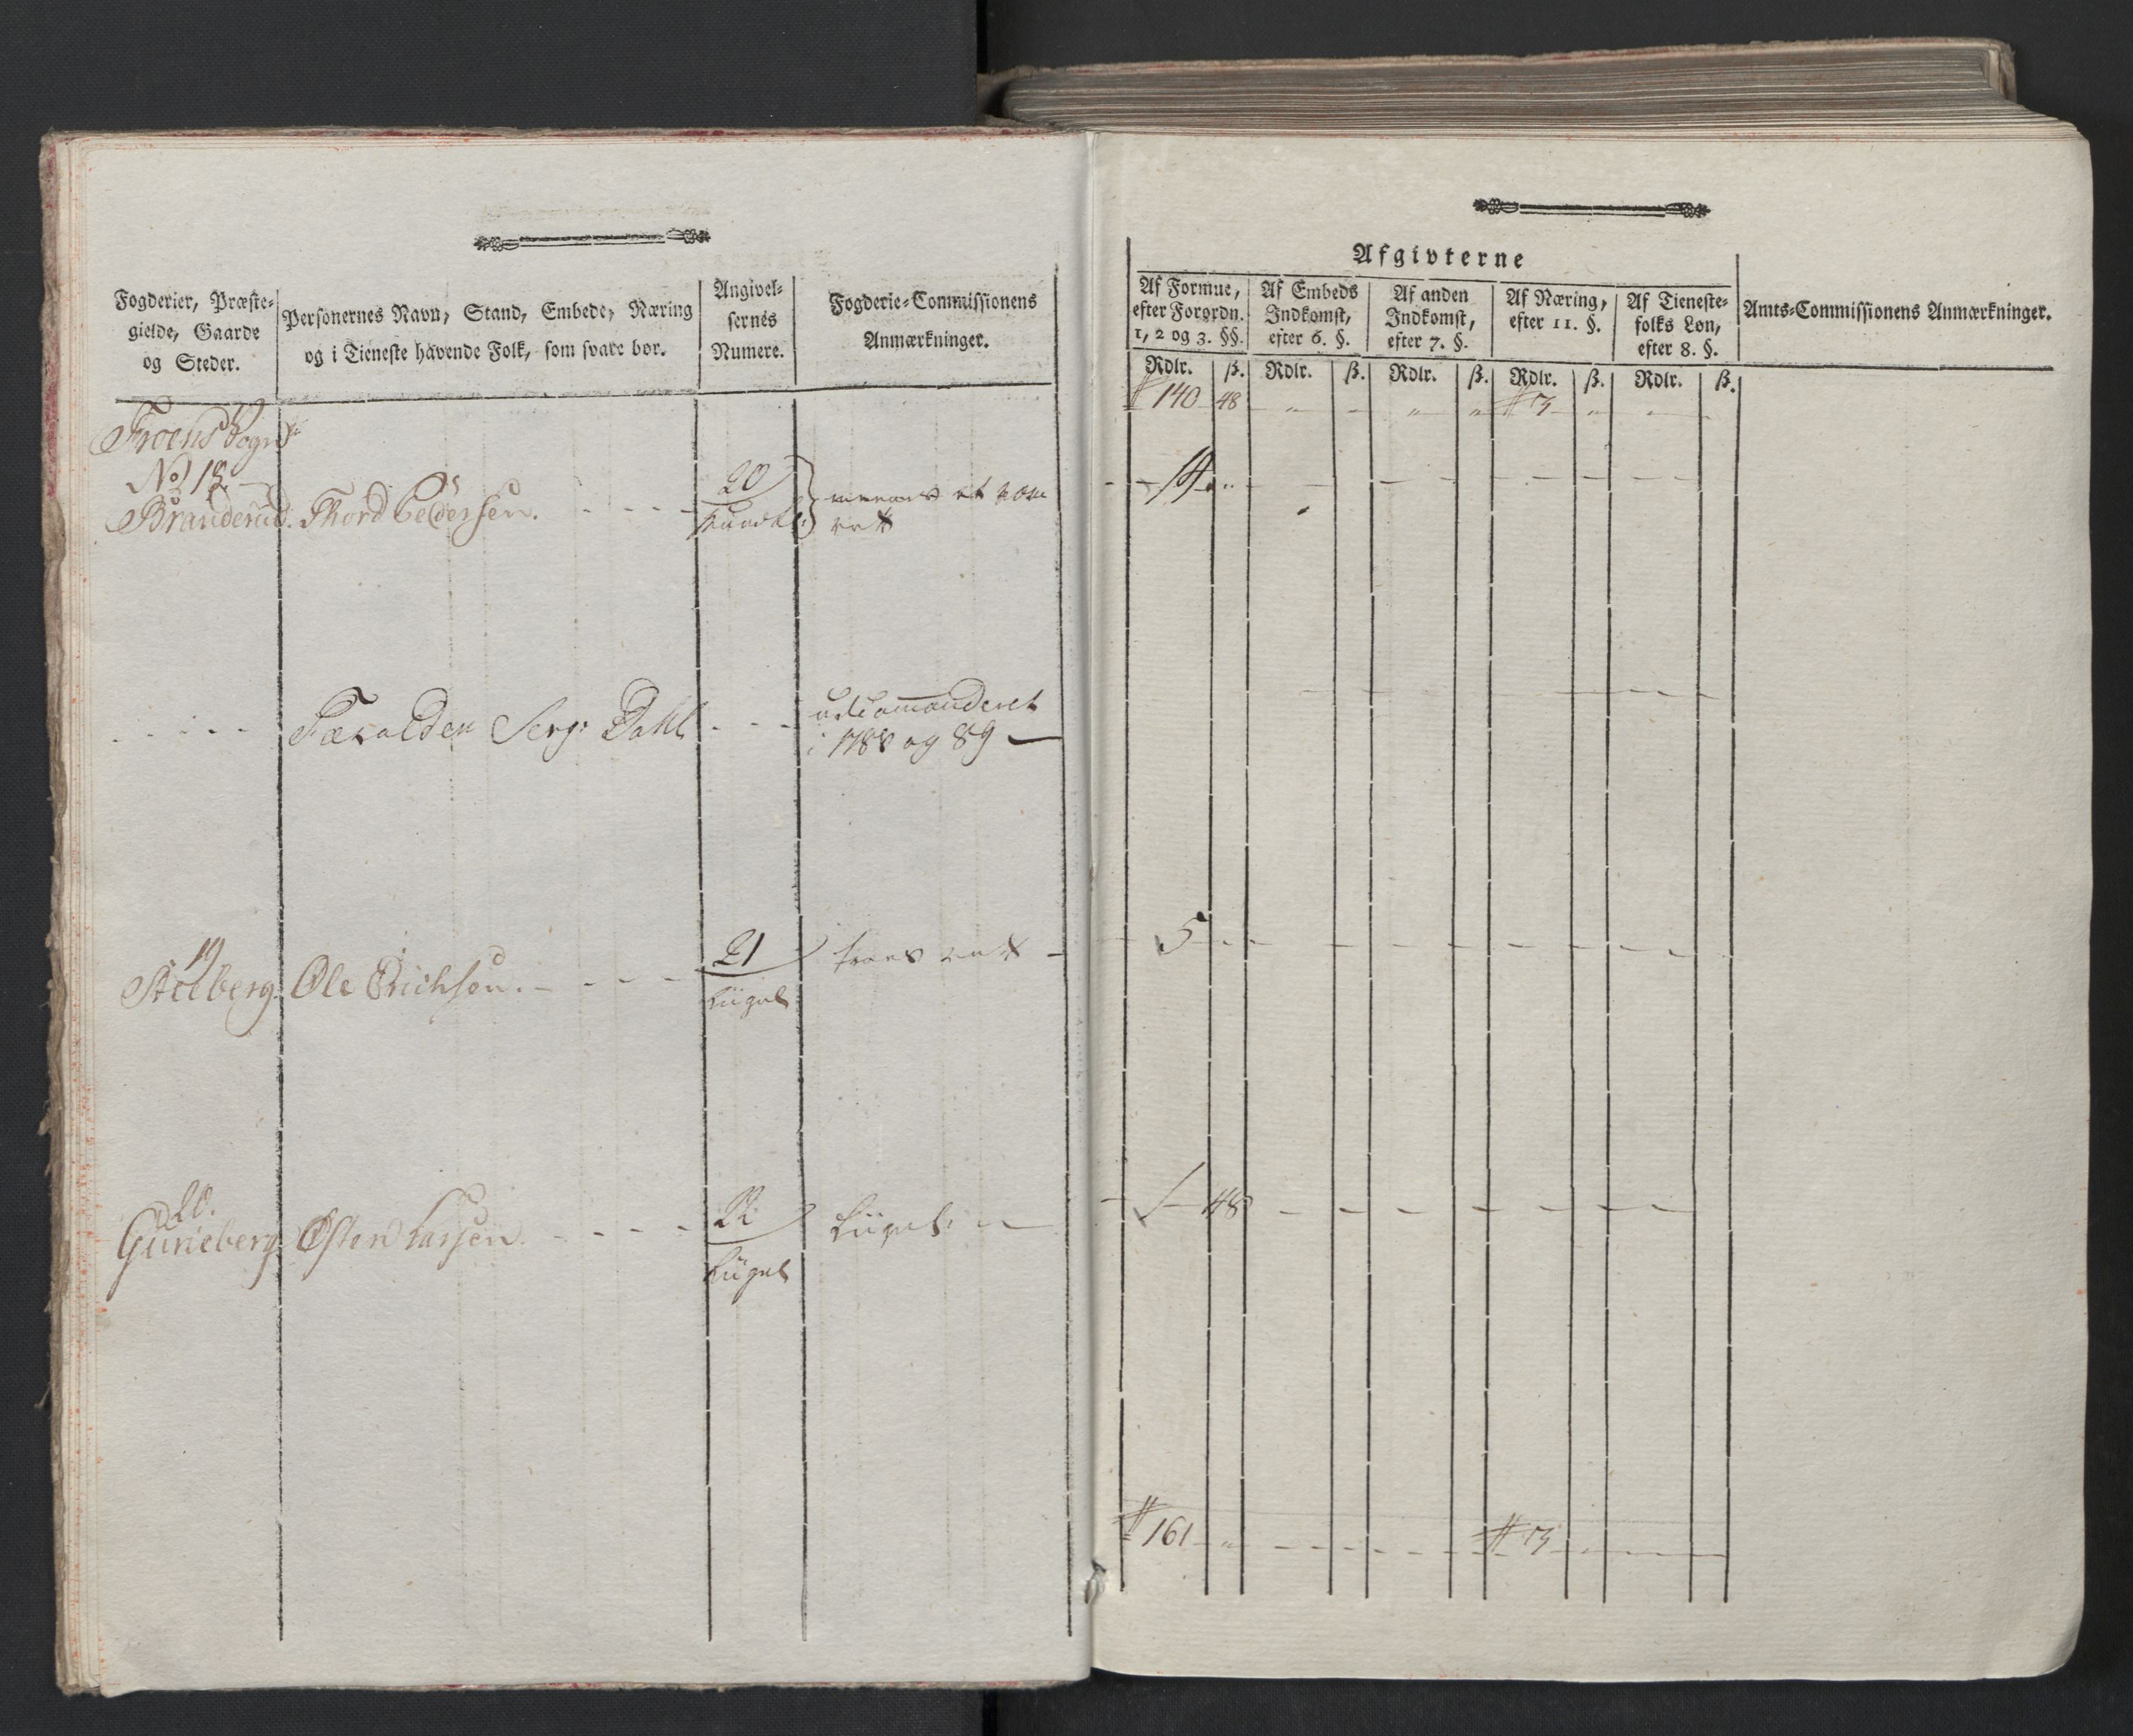 Fogderier, Præste-
gielde, Gaarde
og Steder.
Personernes Navn, Stand, Embede, Næring
og i Tieneste havende Folk, som svare bør.
Angivel-
sernes
Numere.
Fogderie-Commissionens
Anmærkninger.
Froens Sogn
No 18
Branderud. Thord Pedersen. 20
udcommanderet
Serg: Dahl
i 1788 og 89
19
Stilberg. Ole Erichsen. 21
20.
Guneberg. Østen Larsen. 22
Afgivterne
Af Formue,
efter Forordn.
1, 2 og 3. §§.
Af Embeds
Indkomst,
efter 6. §.
Af anden
Indkomst,
efter 7. §.
Af Næring,
efter 11. §.
Af Tieneste-
folks Løn,
efter 8. §.
Amts-Commissionens Anmærkninger.
Rdlr. ß. Rdlr. ß. Rdlr. ß. Rdlr. ß. Rdlr. ß.
140 48 " " " 3 "
14 "
5
1 48
161 " 3